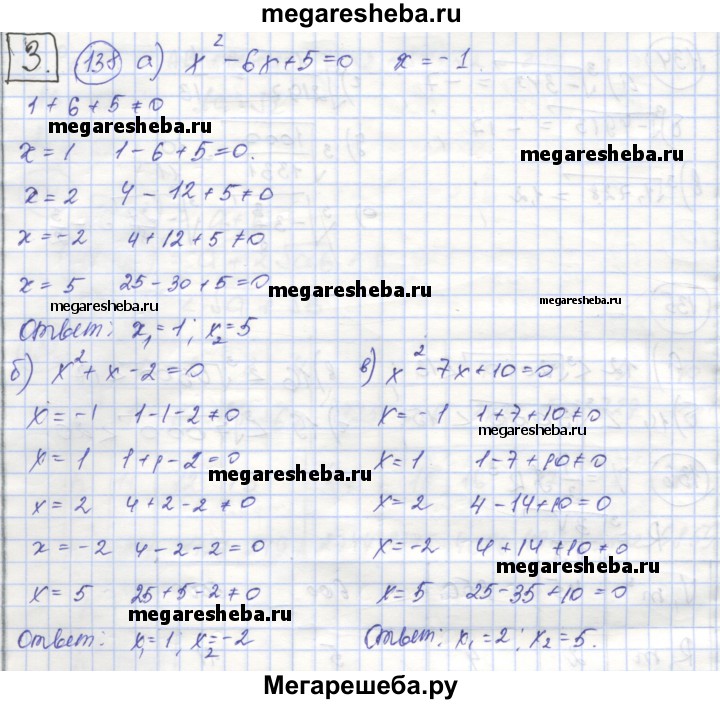 megaresheba.ru
3. 138 а) x² - 6x + 5 = 0 x = -1
1 + 6 + 5 ≠ 0
megaresheba.ru
x = 1 1 - 6 + 5 = 0.
megaresheba.ru
x = 2 4 - 12 + 5 ≠ 0
x = -2 4 + 12 + 5 ≠ 0
x = 5 25 - 30 + 5 = 0
megaresheba.ru megaresheba.ru
Ответ: x₁ = 1; x₂ = 5
б) x² + x - 2 = 0 в) x² - 7x + 10 = 0
x = -1 1 - 1 - 2 ≠ 0 x = -1 1 + 7 + 10 ≠ 0
megaresheba.ru
x = 1 1 + 1 - 2 = 0 x = 1 1 - 7 + 10 ≠ 0
megaresheba.ru
x = 2 4 + 2 - 2 ≠ 0 x = 2 4 - 14 + 10 = 0
x = -2 4 - 2 - 2 = 0 x = -2 4 + 14 + 10 ≠ 0
megaresheba.ru
x = 5 25 + 5 - 2 ≠ 0 x = 5 25 - 35 + 10 = 0
megaresheba.ru
Ответ: x₁ = 1; x₂ = -2 Ответ: x₁ = 2; x₂ = 5.
Мегарешеба.ру